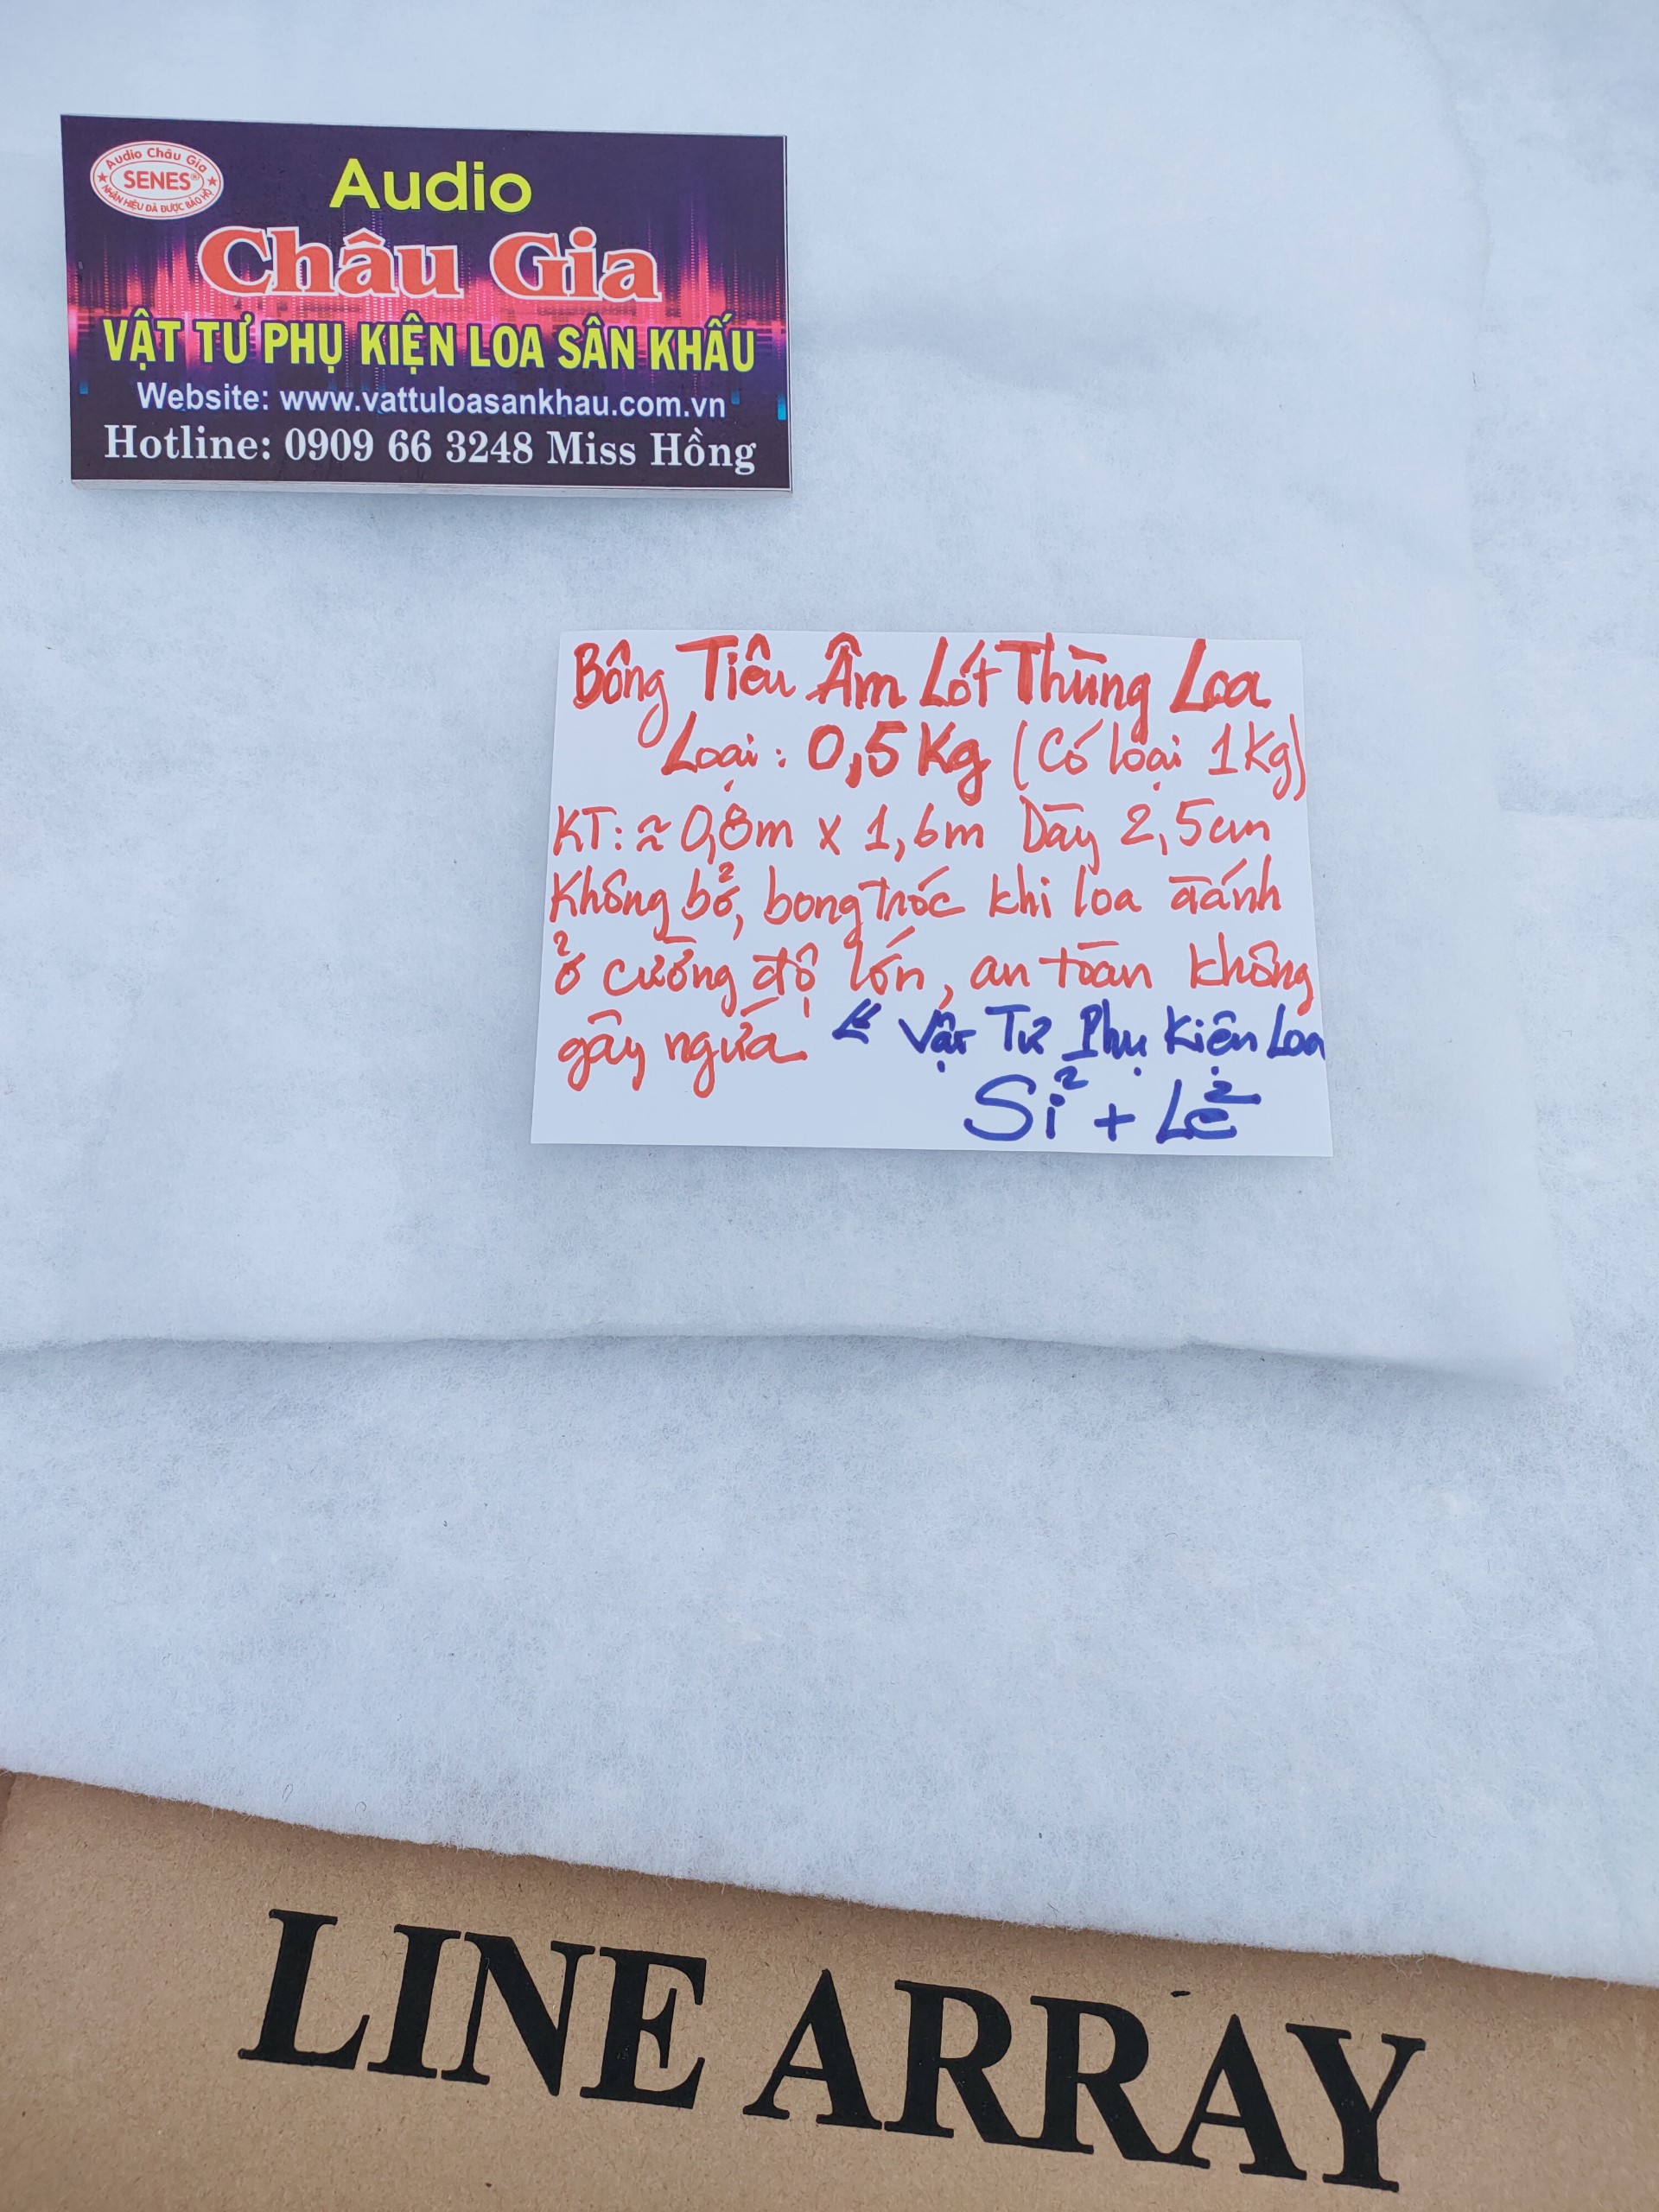 Audio Châu Gia
SENES®
NHÃN HIỆU ĐÃ ĐƯỢC BẢO HỘ
Audio
Châu Gia
VẬT TƯ PHỤ KIỆN LOA SÂN KHẤU
Website: www.vattuloasankhau.com.vn
Hotline: 0909 66 3248 Miss Hồng
Bông Tiêu Âm Lót Thùng Loa
Loại: 0,5 Kg (Có loại 1Kg)
KT: ≈ 0,8m x 1,6m Dày 2,5cm
Không bở, bong tróc khi loa đánh
ở cường độ lớn, an toàn không
gây ngứa
Vật Tư Phụ Kiện Loa
Sỉ + Lẻ
LINE ARRAY